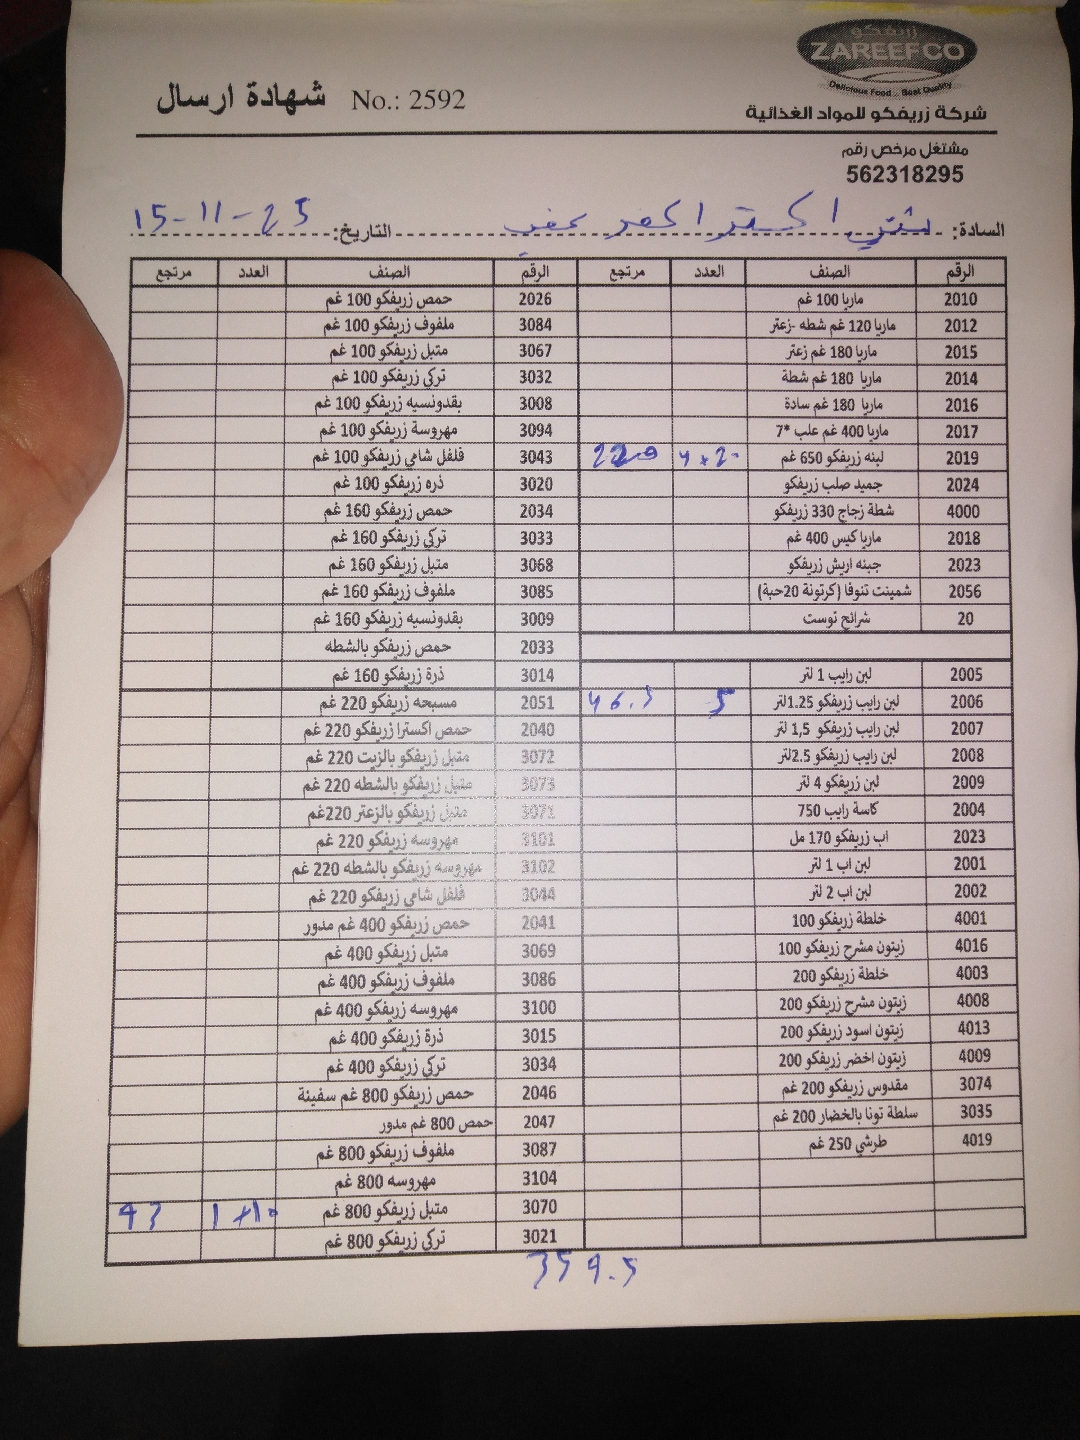 زريفكو
ZAREEFCO
Delicious Food .. Best Quality
شركة زريفكو للمواد الغذائية
شهادة ارسال No.: 2592
مشتغل مرخص رقم
562318295
السادة: التاريخ: 15-11-25
الرقم الصنف العدد مرتجع الرقم الصنف العدد مرتجع
2010 ماريا 100 غم 2026 حمص زريفكو 100 غم
2012 ماريا 120 غم شطه -زعتر 3084 ملفوف زريفكو 100 غم
2015 ماريا 180 غم زعتر 3067 متبل زريفكو 100 غم
2014 ماريا 180 غم شطة 3032 تركي زريفكو 100 غم
2016 ماريا 180 غم سادة 3008 بقدونسيه زريفكو 100 غم
2017 ماريا 400 غم علب *7 3094 مهروسة زريفكو 100 غم
2019 لبنه زريفكو 650 غم 220 3043 فلفل شامي زريفكو 100 غم
2024 جميد صلب زريفكو 3020 ذره زريفكو 100 غم
4000 شطة زجاج 330 زريفكو 2034 حمص زريفكو 160 غم
2018 ماريا كيس 400 غم 3033 تركي زريفكو 160 غم
2023 جبنه اريش زريفكو 3068 متبل زريفكو 160 غم
2056 شمينت تنوفا (كرتونة 20حبة) 3085 ملفوف زريفكو 160 غم
20 شرائح توست 3009 بقدونسيه زريفكو 160 غم
2033 حمص زريفكو بالشطه
2005 لبن رايب 1 لتر 3014 ذرة زريفكو 160 غم
2006 لبن رايب زريفكو 1.25لتر 5 46.5 2051 مسبحه زريفكو 220 غم
2007 لبن رايب زريفكو 1,5 لتر 2040 حمص اكسترا زريفكو 220 غم
2008 لبن رايب زريفكو 2.5لتر 3072 متبل زريفكو بالزيت 220 غم
2009 لبن زريفكو 4 لتر 3073 متبل زريفكو بالشطه 220 غم
2004 كاسة رايب 750 3071 متبل زريفكو بالزعتر 220غم
2023 اب زريفكو 170 مل 3101 مهروسه زريفكو 220 غم
2001 لبن اب 1 لتر 3102 مهروسه زريفكو بالشطه 220 غم
2002 لبن اب 2 لتر 3044 فلفل شامي زريفكو 220 غم
4001 خلطة زريفكو 100 2041 حمص زريفكو 400 غم مدور
4016 زيتون مشرح زريفكو 100 3069 متبل زريفكو 400 غم
4003 خلطة زريفكو 200 3086 ملفوف زريفكو 400 غم
4008 زيتون مشرح زريفكو 200 3100 مهروسه زريفكو 400 غم
4013 زيتون اسود زريفكو 200 3015 ذرة زريفكو 400 غم
4009 زيتون اخضر زريفكو 200 3034 تركي زريفكو 400 غم
3074 مقدوس زريفكو 200 غم 2046 حمص زريفكو 800 غم سفينة
3035 سلطة تونا بالخضار 200 غم 2047 حمص 800 غم مدور
4019 طرشي 250 غم 3087 ملفوف زريفكو 800 غم
3104 مهروسه 800 غم
3070 متبل زريفكو 800 غم 1×10 93
3021 تركي زريفكو 800 غم
359.5